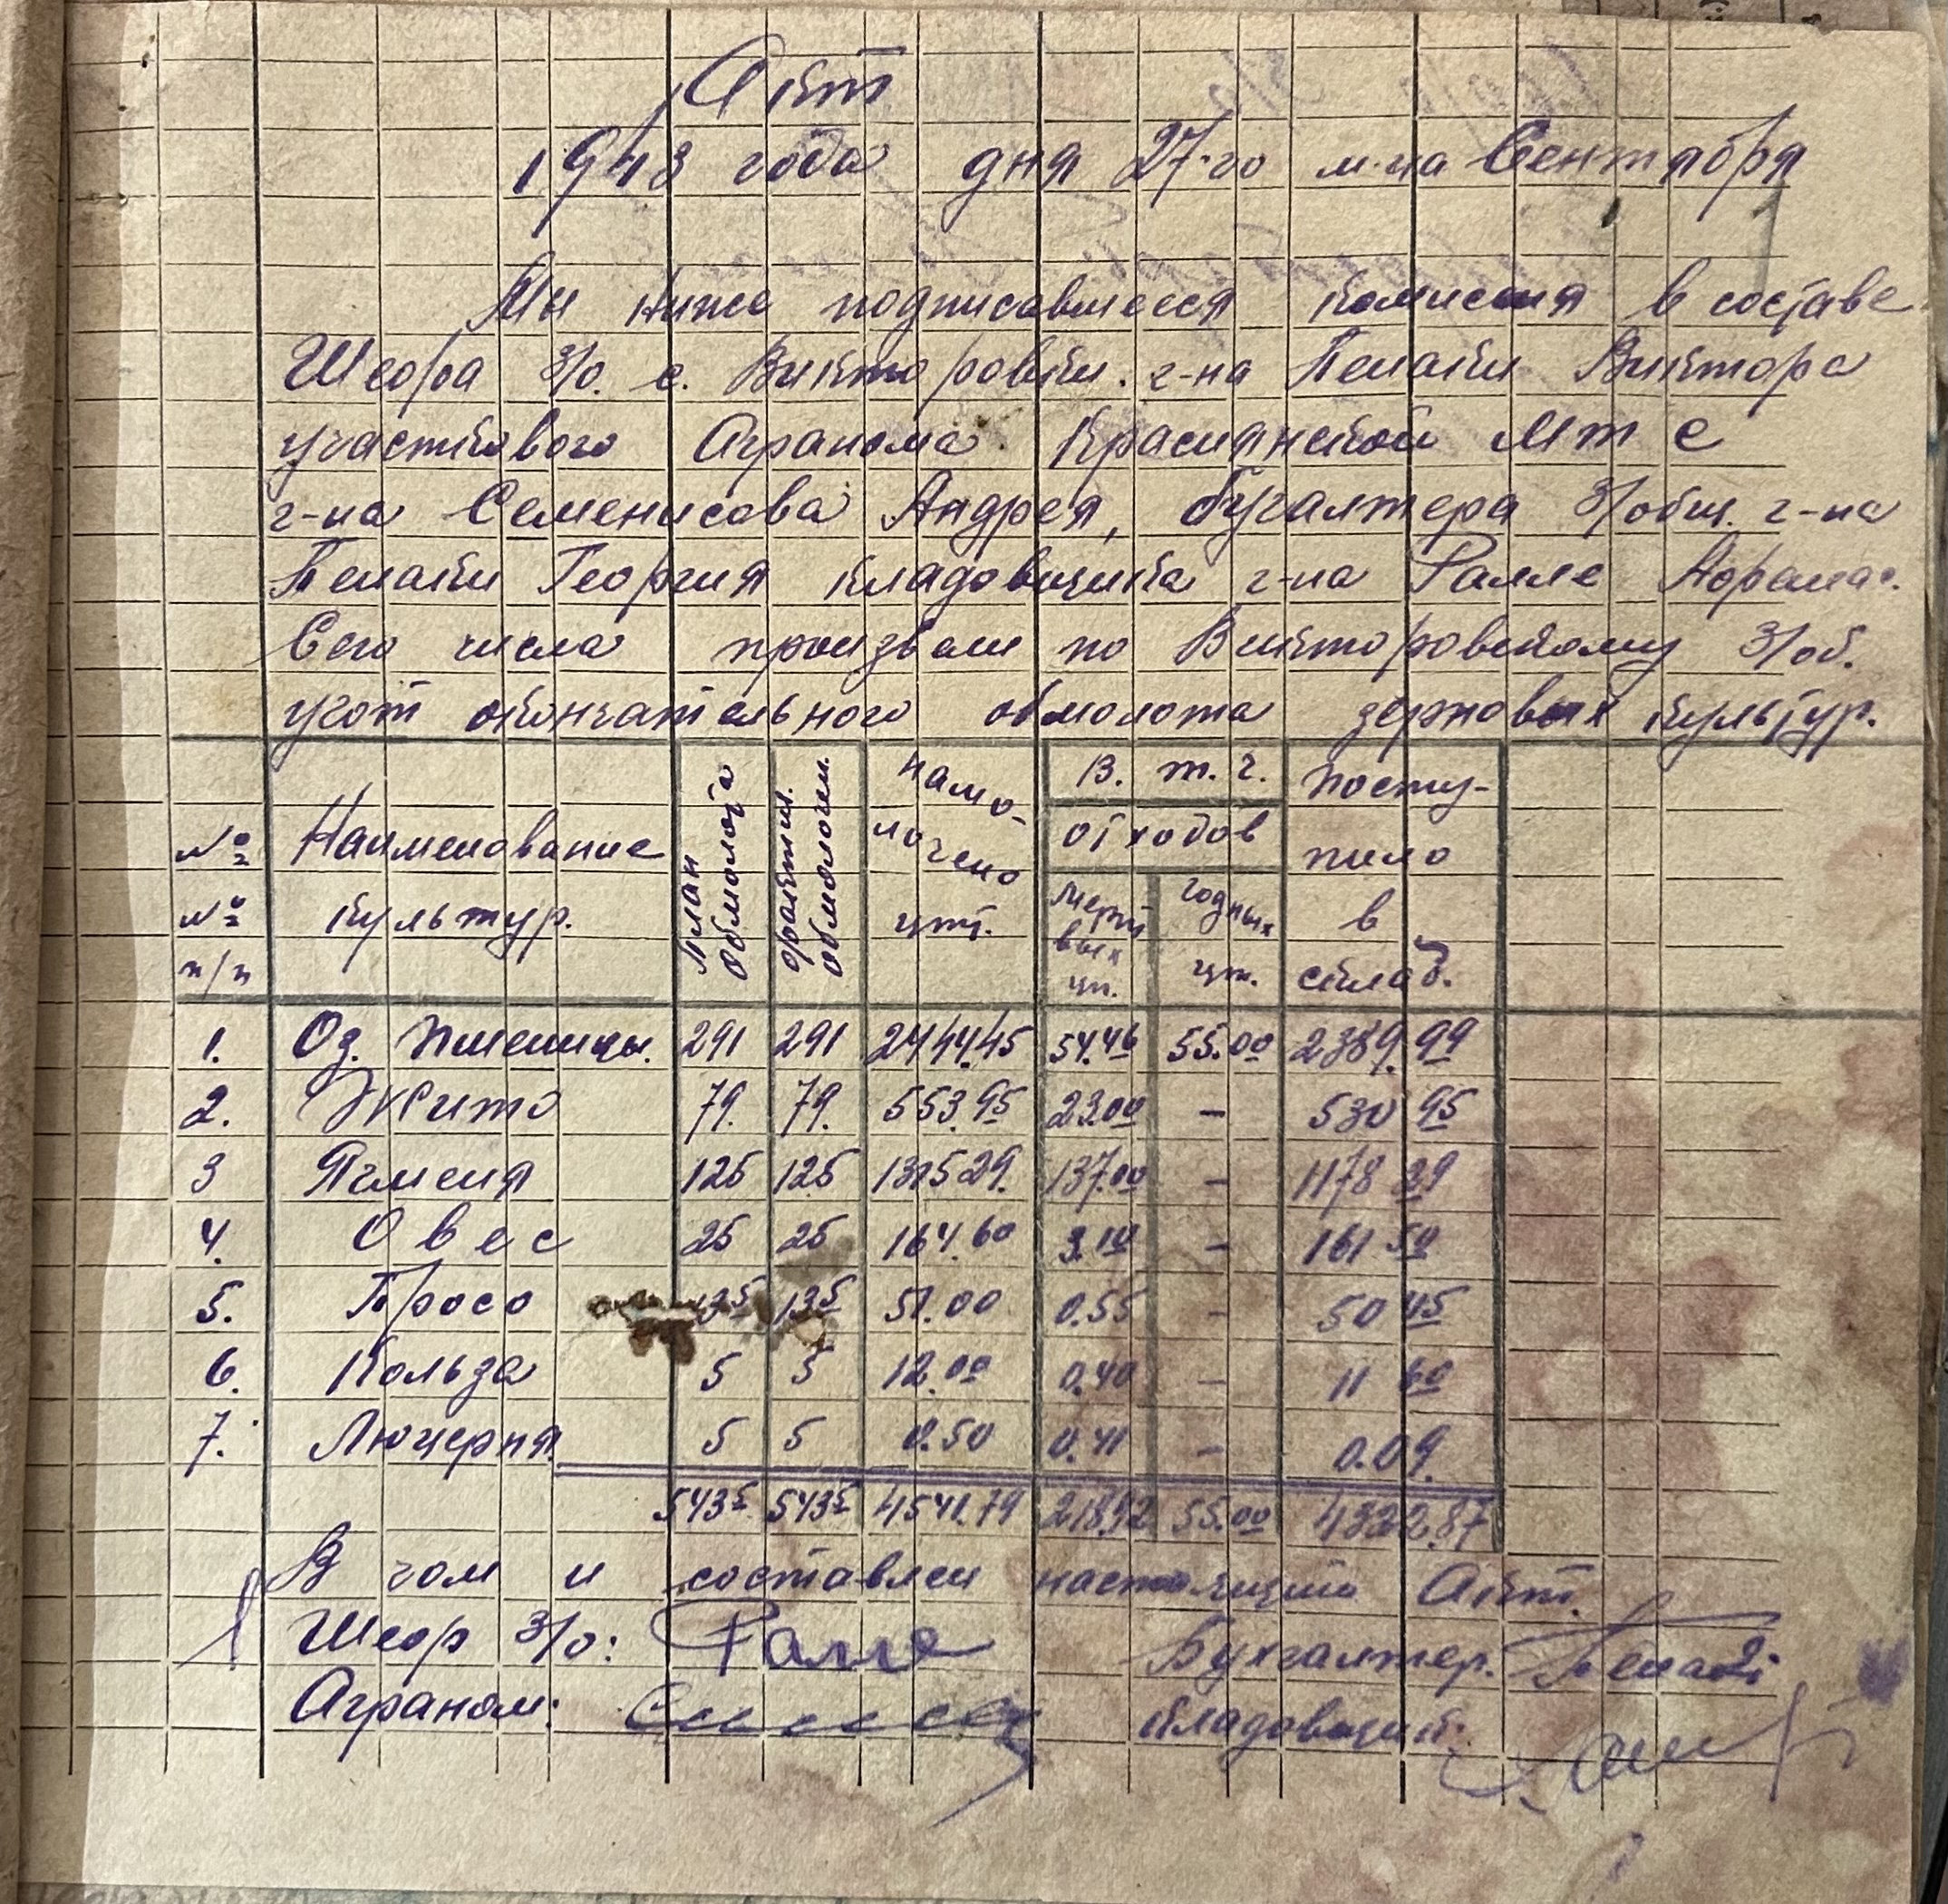 Акт
1943 года дня 27-го м-ца Сентября
Мы ниже подписавшиеся комиссия в составе
Шефа з/о. с. Викторовки. г-на Пелаки Виктора
участкового Агранома Краснянской Мтс
г-на Семенисова Андрея, бугалтера з/общ. г-на
Пелаки Георгия кладовщика г-на Ралле
Сего числа произвели по Викторовскому з/об.
учот окончательного обмолота зерновых культур.
№ Наименование План обмолота фактич. обмолочен. намо- В. т. ч. посту-
№ культур. лочено отходов пило
п/п цт. мерт годных в
вых цт. склад.
цт.
1. Оз. Пшеницы. 291 291 2444.45 54.46 55.00 2389.99
2. Жито 79. 79. 553.95 23.00 - 530 95
3 Ячменя 125 125 1315 29. 137.00 - 1178 29
4. Овес 25 25 164.60 3.10 - 161 50
5. Просо 13 5 13 5 51.00 0.55 - 50 45
6. Кольза 5 5 12.00 0.40 - 11 60
7. Люцерня 5 5 0.50 0.41 - 0.09.
543 5 543 5 4541.79 218.92 55.00 4322.87
В чом и составлен настоящий Акт.
Шеф з/о: Бухгалтер. Пелаки
Аграном: Кладовщик: